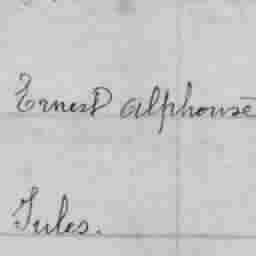 Ernest Alphonse
Jules.